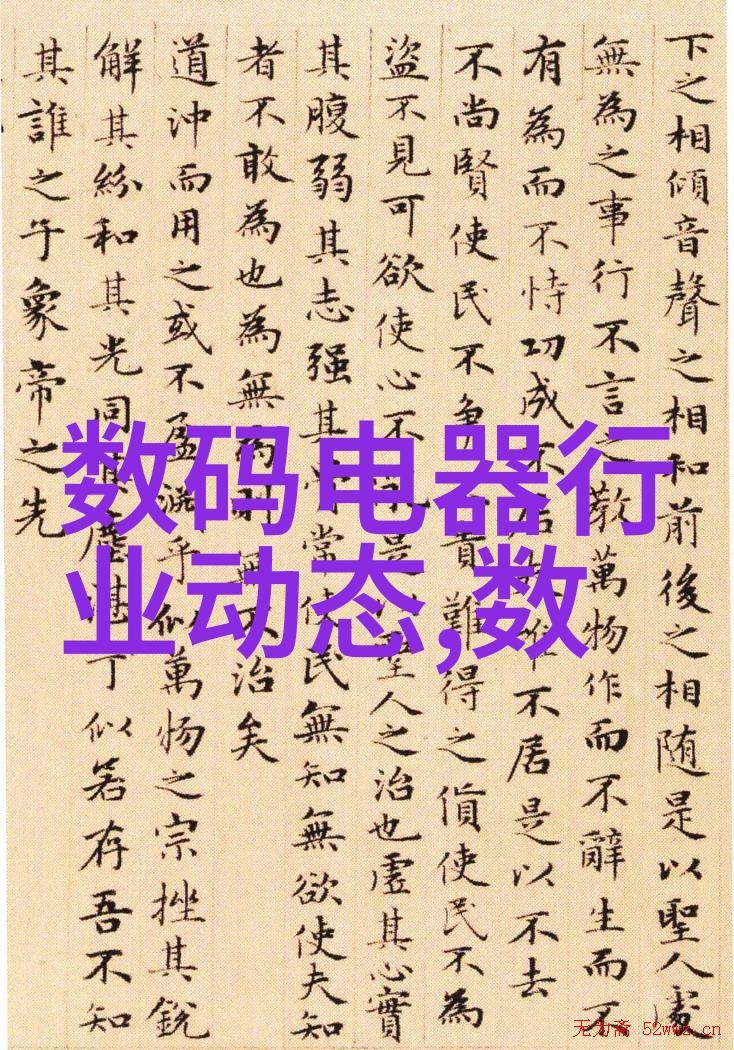 下之相傾音聲之相和前後之相随是以聖人處
無為之事行不言之教萬物作而不辭生而不
有為而不恃功成不不居是以不去
不尚賢使民不争貴難得之貨使民不為
盜不見可欲使心不是聖人之治也虛其心實
其腹弱其志强其常使民無知無欲使夫知
者不敢為也為無為則無不治矣
道沖而用之或不盈淵乎似萬物之宗挫其銳
解其紛和其光同其塵湛兮似若存吾不知
其誰之子象帝之先
数码电器行
业动态,数
无为斋 52wwz.cn